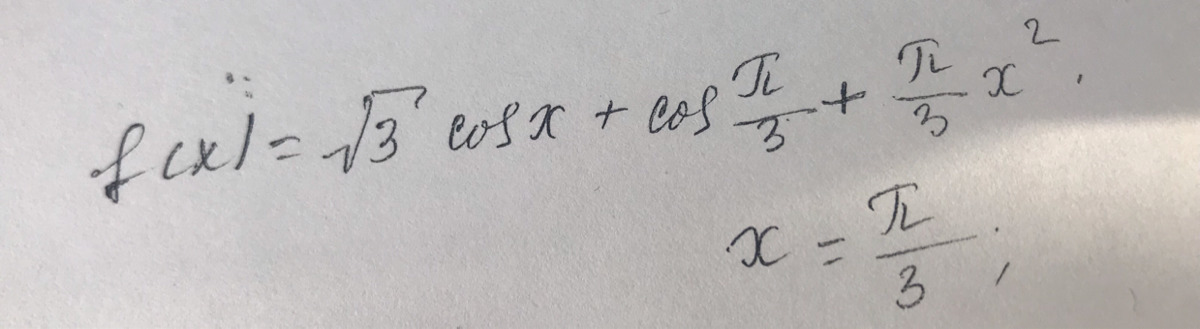 f(x) = √3 cos x + cos π/3 + π/3 x².
x = π/3;